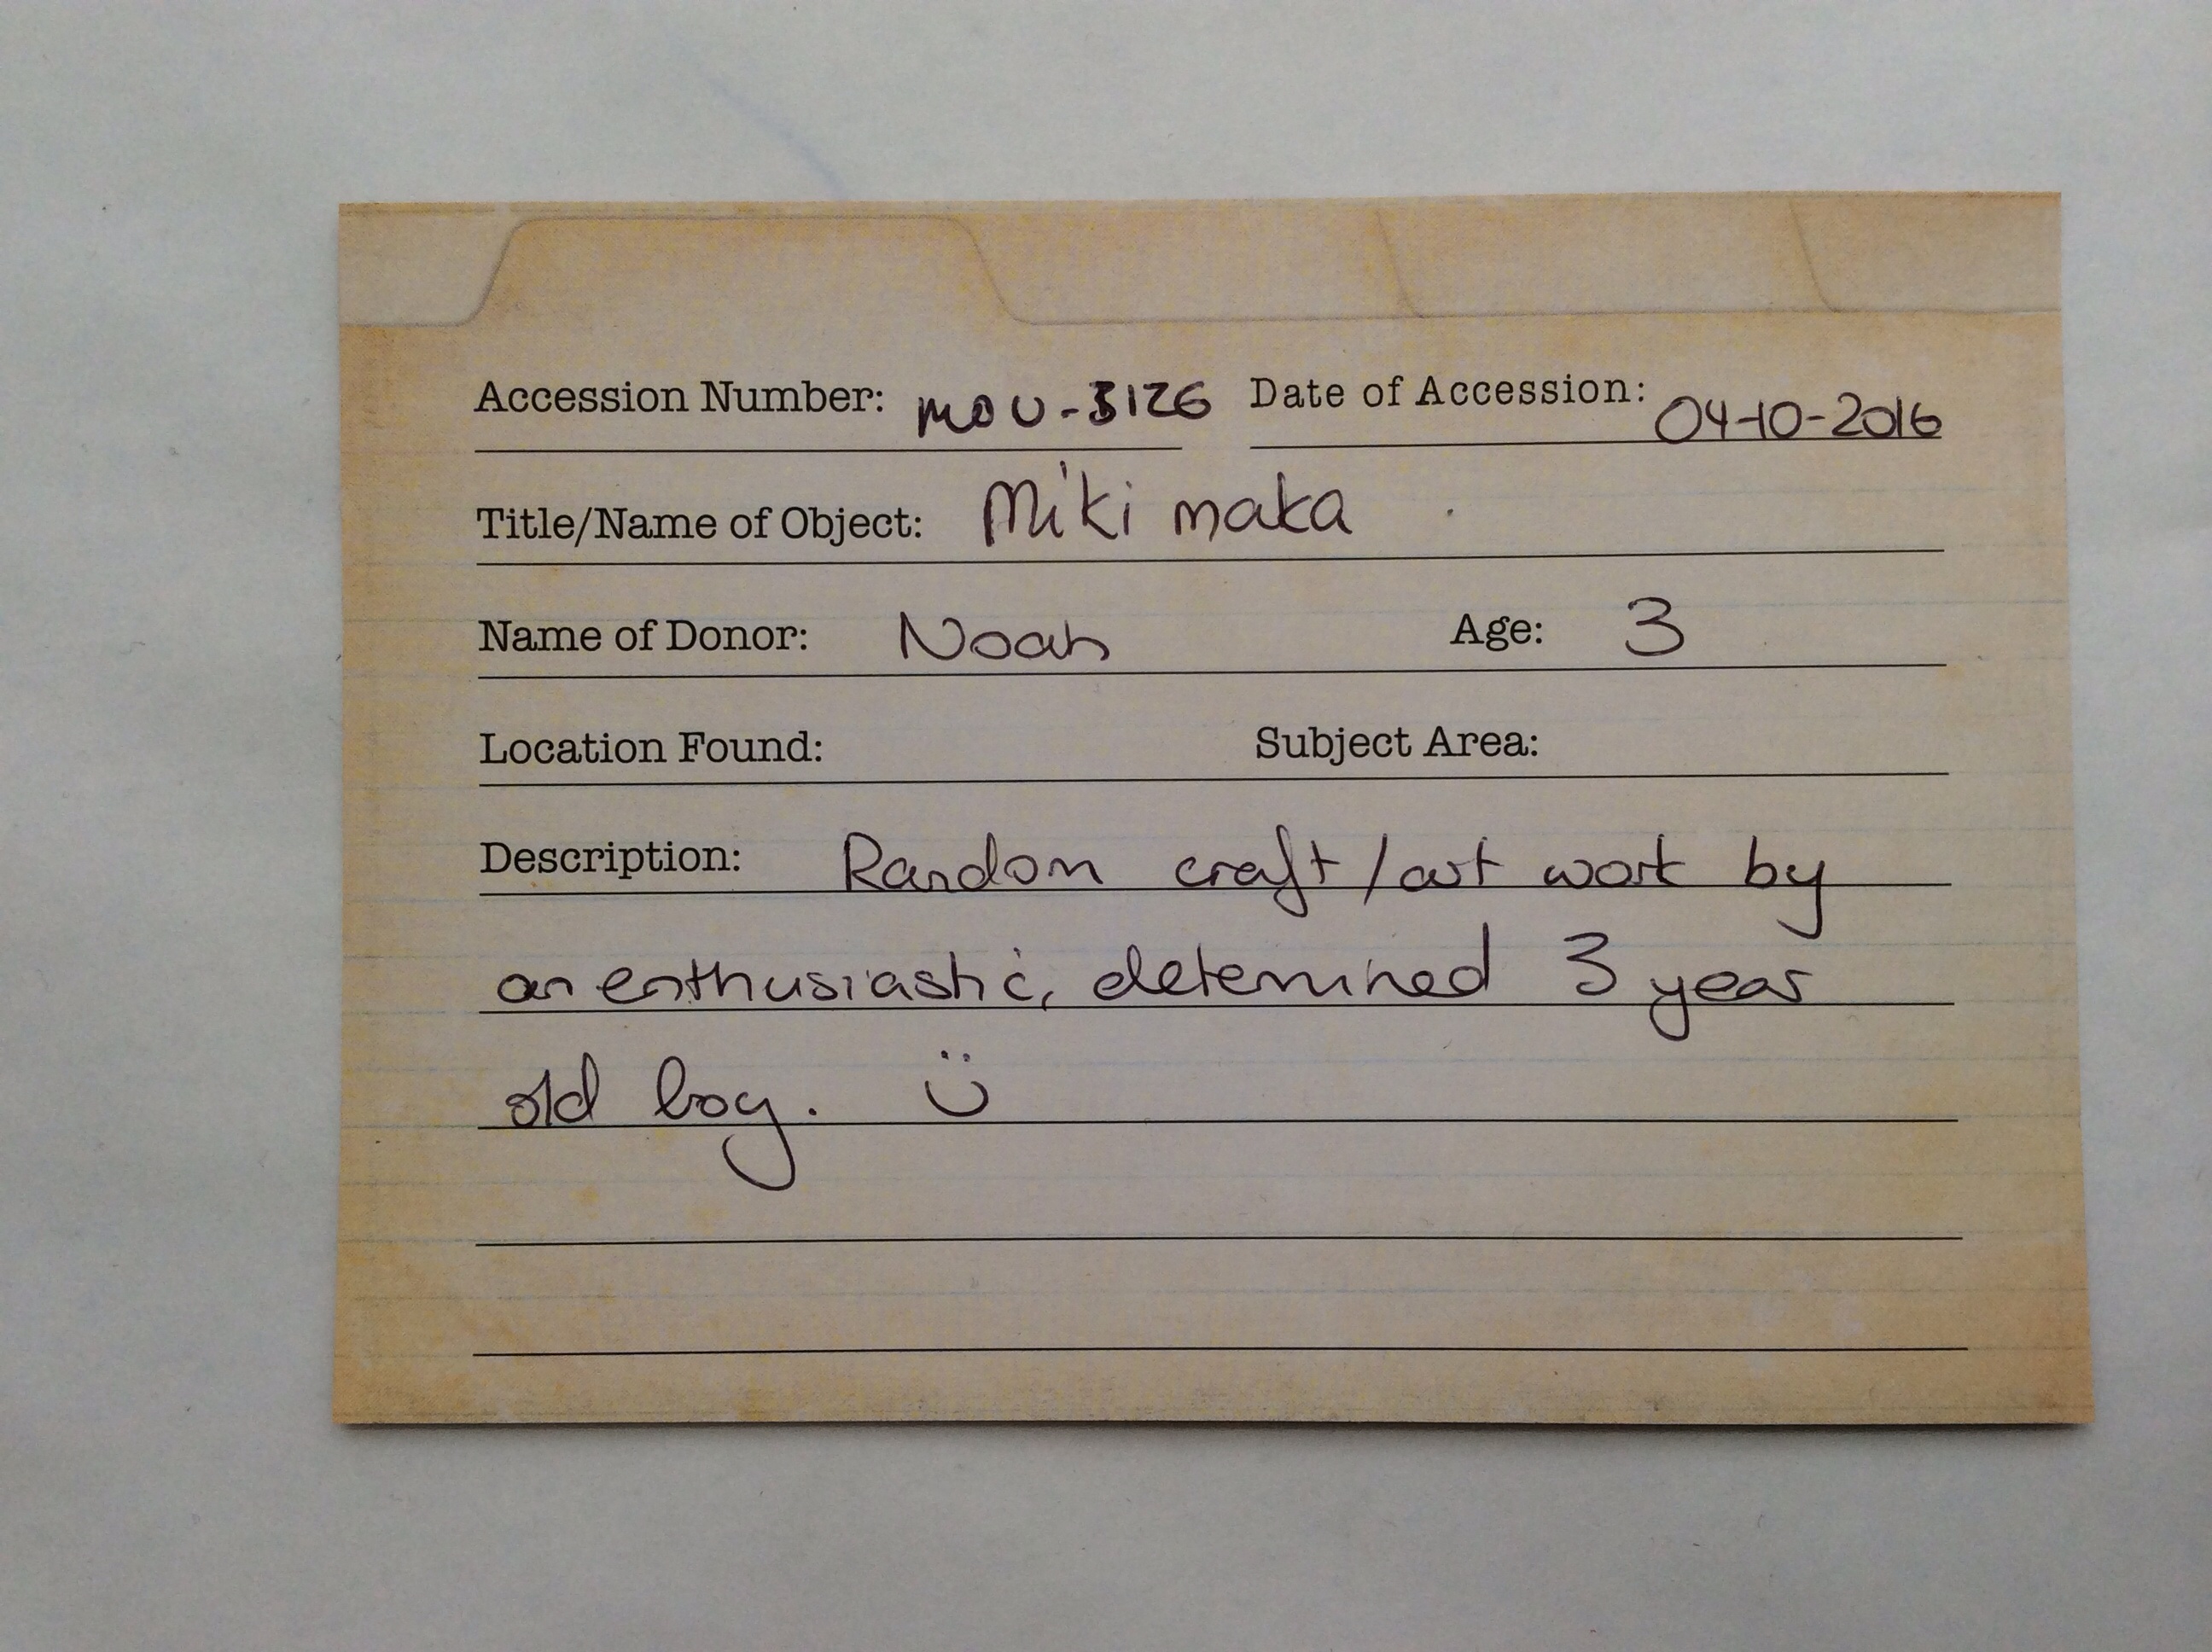 Accession Number: MOU-3126 Date of Accession: 04-10-2016
Title/Name of Object: Miki maka
Name of Donor: Noah Age: 3
Location Found: Subject Area:
Description: Random craft/art work by
an enthusiastic, detemined 3 year
old boy. Ü